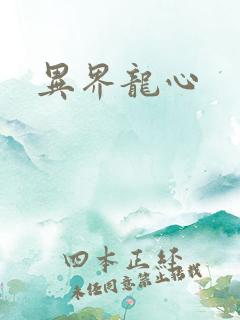 異界龍心
四本正经
未经同意禁止搭载